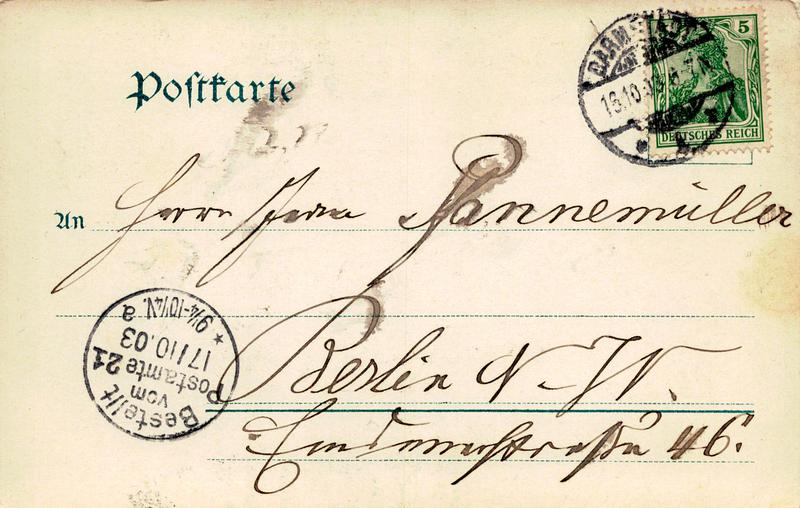 Postkarte
DARMSTADT
16.10.03
5
DEUTSCHES REICH
An Herrn Pannemüller
Berlin N-W.
46.
Bestellt
vom
Postamte 21
17/10.03
9¼-10¼V.
a